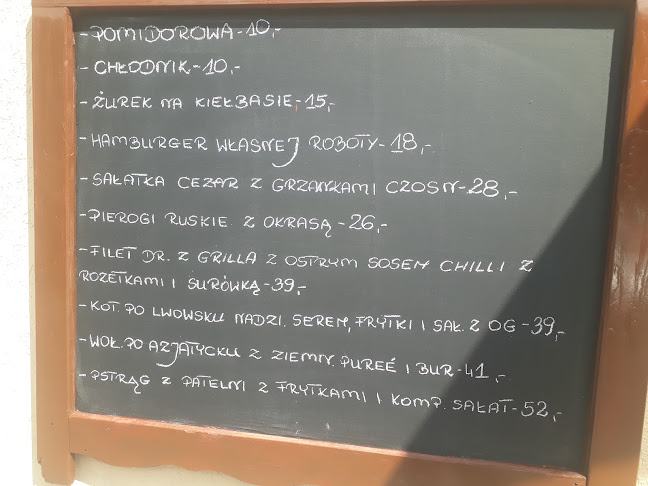 - POMIDOROWA-10,-
- CHŁODNIK-10,-
- ŻUREK NA KIEŁBASIE-15,-
- HAMBURGER WŁASNEJ ROBOTY-18,-
- SAŁATKA CEZAR Z GRZANKAMI CZOSN-28,-
- PIEROGI RUSKIE Z OKRASĄ-26,-
- FILET DR. Z GRILLA Z OSTRYM SOSEM CHILLI Z
ROZETKAMI I SURÓWKĄ-39,-
- KOT. PO LWOWSKU NADZI. SEREM, FRYTKI I SAŁ. Z OG-39,-
- WOŁ. PO AZJATYCKU Z ZIEMN. PUREÉ I BUR-41,-
- PSTRĄG Z PATELNI Z FRYTKAMI I KOMP. SAŁAT-52,-